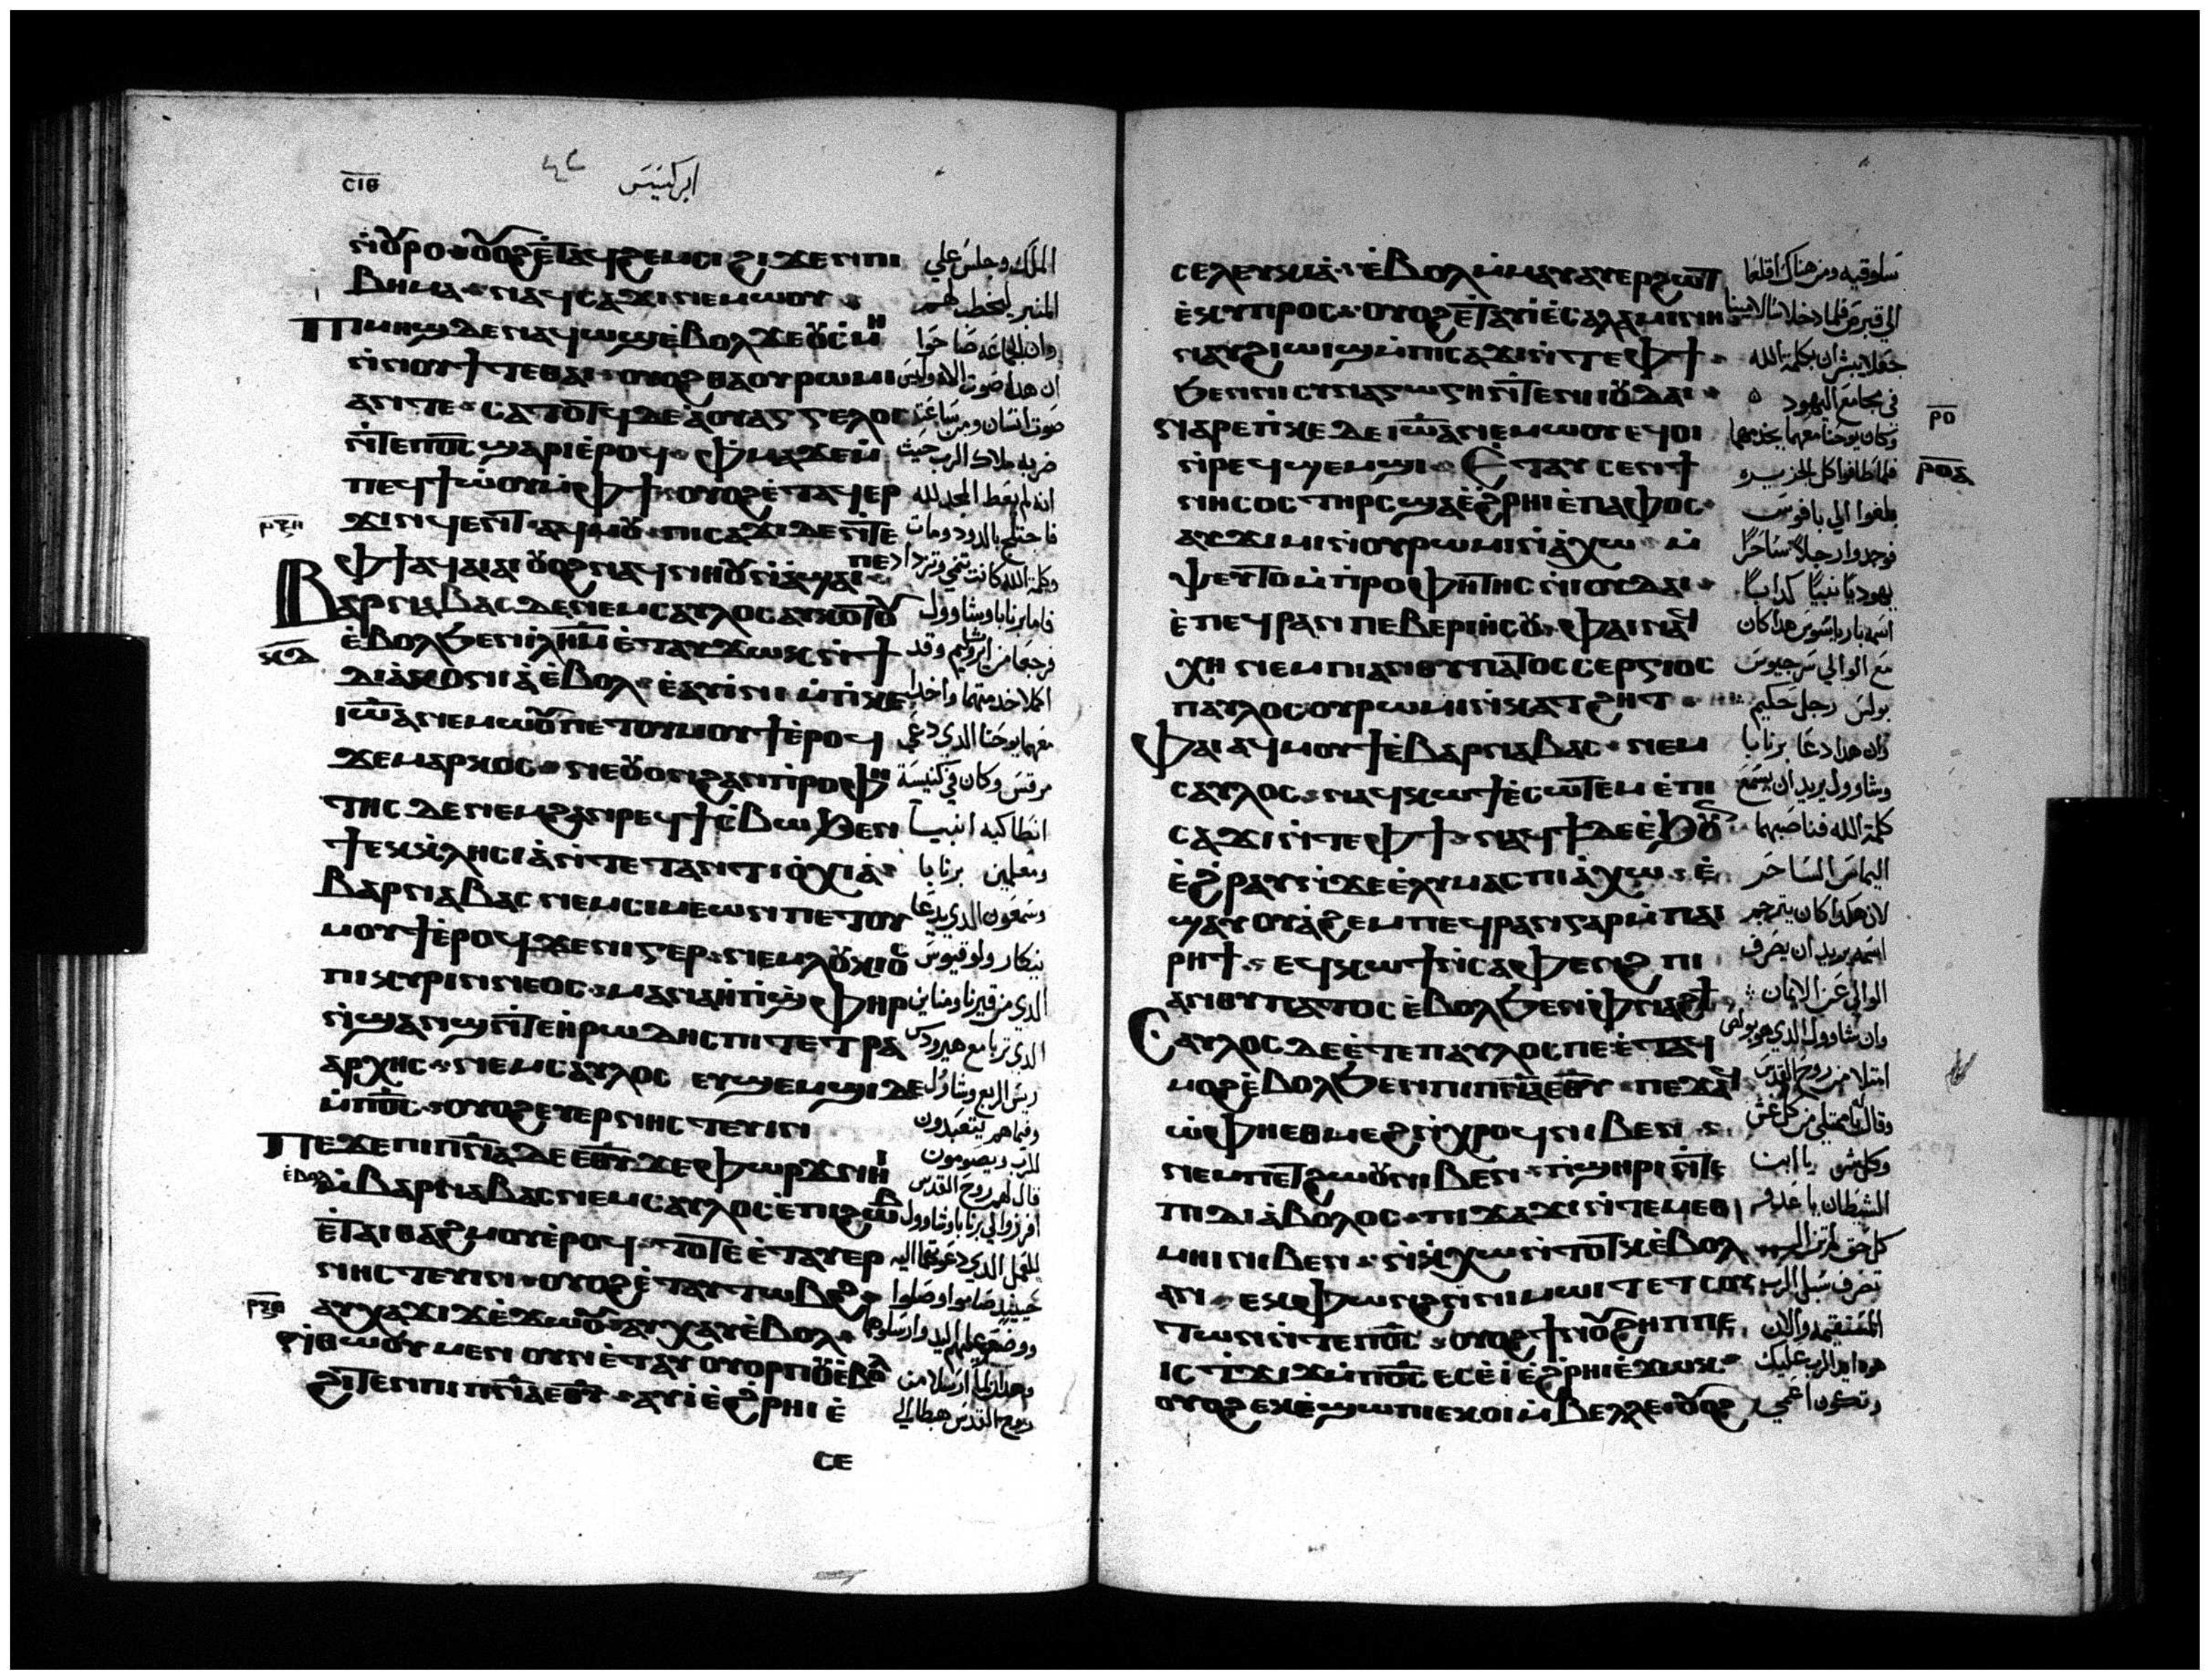 ⲥⲓⲑ
ابركسيس
ⲛⲟⲩⲣⲟ ⲟⲩⲟϩ ⲉⲧⲁϥϩⲉⲙⲥⲓ ϩⲓϫⲉⲛ ⲡⲓ
ⲃⲏⲙⲁ ⲛⲁϥⲥⲁϫⲓ ⲛⲉⲙⲱⲟⲩ
ⲡⲓⲙⲏϣ ⲇⲉ ⲛⲁϥⲱϣ ⲉⲃⲟⲗ ϫⲉ ⲟⲩⲥⲙⲏ
ⲛⲛⲟⲩϯ ⲧⲉ ⲑⲁⲓ ⲟⲩⲟϩ ⲑⲁ ⲟⲩⲣⲱⲙⲓ
ⲁⲛ ⲧⲉ ⲥⲁⲧⲟⲧϥ ⲇⲉ ⲁ ⲟⲩⲁⲅⲅⲉⲗⲟⲥ
ⲛⲧⲉ ⲡ︦ⲟ︦ⲥ︦ ϣⲁⲣⲓ ⲉⲣⲟϥ ⲫⲙⲁ ϫⲉ ⲙ
ⲡⲉϥϯ ⲱⲟⲩ ⲙⲫϯ ⲟⲩⲟϩ ⲉⲧⲁϥⲉⲣ
ϫⲓⲛϥⲉⲛⲧ ⲁϥⲙⲟⲩ ⲡⲓⲥⲁϫⲓ ⲇⲉ ⲛⲧⲉ
ⲫϯ ⲁϥⲁⲓⲁⲓ ⲟⲩⲟϩ ⲛⲁϥⲛⲏⲟⲩ ⲛⲁϣⲁⲓ ⲡⲉ
ⲃⲁⲣⲛⲁⲃⲁⲥ ⲇⲉ ⲛⲉⲙ ⲥⲁⲩⲗⲟⲥ ⲁⲩⲕⲟⲧⲟⲩ
ⲉⲃⲟⲗ ϧⲉⲛ ⲓⲗⲏⲙ ⲉⲧⲁⲩϫⲱⲕ ⲛϯ
ⲇⲓⲁⲕⲟⲛⲓⲁ ⲉⲃⲟⲗ ⲉⲁⲩⲓⲛⲓ ⲙⲡⲓⲕⲉ
ⲓⲱⲁ ⲛⲉⲙⲱⲟⲩ ⲡⲉⲧⲟⲩⲙⲟⲩϯ ⲉⲣⲟϥ
ϫⲉ ⲙⲁⲣⲕⲟⲥ ⲛⲉ ⲟⲩⲟⲛ ϩⲁⲛⲡⲣⲟⲫⲏ
ⲧⲏⲥ ⲇⲉ ⲛⲉⲙ ϩⲁⲛⲣⲉϥϯⲥⲃⲱ ϧⲉⲛ
ϯⲉⲕⲕⲗⲏⲥⲓⲁ ⲛⲧⲉ ⲧⲁⲛⲧⲓⲟⲭⲓⲁ
ⲃⲁⲣⲛⲁⲃⲁⲥ ⲛⲉⲙ ⲥⲓⲙⲉⲱⲛ ⲡⲉⲧⲟⲩ
ⲙⲟⲩϯ ⲉⲣⲟϥ ϫⲉ ⲛⲓⲅⲉⲣ ⲛⲉⲙ ⲗⲟⲩⲕⲓⲟⲥ
ⲡⲓⲕⲩⲣⲓⲛⲛⲉⲟⲥ ⲙⲁⲛⲁⲏⲛ ⲡϣⲫⲏⲣ
ⲛϣⲁⲛϣ ⲛⲧⲉ ⲏⲣⲱⲇⲏⲥ ⲡⲓⲧⲉⲧⲣⲁ
ⲁⲣⲭⲏⲥ ⲛⲉⲙ ⲥⲁⲩⲗⲟⲥ ⲉⲩϣⲉⲙϣⲓ ⲇⲉ
ⲙⲡ︦ⲟ︦ⲥ︦ ⲟⲩⲟϩ ⲉⲩⲉⲣⲛⲏⲥⲧⲉⲩⲓⲛ
ⲡⲉϫⲉ ⲡⲓⲡ︦ⲛ︦ⲁ︦ ⲇⲉ ⲉ︦ⲑ︦ⲩ︦ ϫⲉ ⲫⲱⲣϫ ⲛⲏⲓ
ⲉⲃⲟⲗ ⲙⲃⲁⲣⲛⲁⲃⲁⲥ ⲛⲉⲙ ⲥⲁⲩⲗⲟⲥ ⲉⲡⲓϩⲱⲃ
ⲉⲧⲁⲓⲑⲁϩⲙⲟⲩ ⲉⲣⲟϥ ⲧⲟⲧⲉ ⲉⲧⲁⲩⲉⲣ
ⲛⲏⲥⲧⲉⲩⲓⲛ ⲟⲩⲟϩ ⲉⲧⲁⲩⲧⲱⲃϩ
ⲁⲩⲭⲁϫⲓϫ ⲉϫⲱⲟⲩ ⲁⲩⲭⲁⲩ ⲉⲃⲟⲗ
ⲛⲑⲱⲟⲩ ⲙⲉⲛ ⲟⲩⲛ ⲉⲧⲁⲩⲟⲩⲟⲣⲡⲟⲩ ⲉⲃⲟⲗ
ϩⲓⲧⲉⲛ ⲡⲓⲡ︦ⲛ︦ⲁ︦ ⲉ︦ⲑ︦ⲩ︦ ⲁⲩⲓ ⲉϩⲣⲏⲓ ⲉ
ⲥⲉ
الملك وجلس علي
المنبر ليخطبهم
وان الجماعه صاحوا
ان هدا صوت الاه وليس
صوت انسان ومن ساعته
ضربه ملاك الرب حيث
انه لم يعط المجد لله
فاجتلي بالدود ومات
وكلمة الله كانت تنمي وتزداد
فاما برنابا وشاوول
فرجعا من ايروشليم وقد
اكملا خدمتهما واخدا
معهما يوحنا الدي دعي
مرقس وكان في كنيسة
انطاكيه انبيآ
ومعلمين برنابا
وسمعون الدي يدعا
نيكار ولوقيوس
الدي من قيرنا ومناين
الدي تربا مع هيرودس
ريس الربع وشاول
وفيما هم يتعبدون
للرب ويصومون
قال لهم روح القدس
افرزوا لي برنابا وشاوول
للعمل الدي دعوتهما اليه
حينيد صاموا وصلوا
ووضعوا عليهم اليد وارسلوهم
وهدان لما ارسلا من
روح القدس هبطا الي
ⲥⲉⲗⲉⲩⲕⲓⲁ ⲉⲃⲟⲗ ⲙⲙⲁⲩ ⲁⲩⲉⲣϩⲱⲧ
ⲉⲕⲩⲡⲣⲟⲥ ⲟⲩⲟϩ ⲉⲧⲁⲩⲓ ⲉⲥⲁⲗⲁⲙⲓⲛⲏ
ⲛⲁⲩϩⲓⲱⲓϣ ⲙⲡⲓⲥⲁϫⲓ ⲛⲧⲉ ⲫϯ
ϧⲉⲛ ⲛⲓⲥⲩⲛⲁⲅⲱⲅⲏ ⲛⲧⲉ ⲛⲓⲟⲩⲇⲁⲓ
ⲛⲁⲣⲉ ⲡⲓⲕⲉ ⲇⲉ ⲓⲱⲁ ⲛⲉⲙⲱⲟⲩ ⲉϥⲟⲓ
ⲛⲣⲉϥϣⲉⲙϣⲓ ⲉⲧⲁⲩⲥⲉⲛ ϯ
ⲛⲏⲥⲟⲥ ⲧⲏⲣⲥ ϣⲁ ⲉϩⲣⲏⲓ ⲉⲡⲁⲫⲟⲥ
ⲁⲩϫⲓⲙⲓ ⲛⲟⲩⲣⲱⲙⲓ ⲛⲁⲭⲱ ⲙ
ⲯⲉⲩⲧⲟⲙⲡⲣⲟⲫⲏⲧⲏⲥ ⲛⲓⲟⲩⲇⲁⲓ
ⲉⲡⲉϥⲣⲁⲛ ⲡⲉ ⲃⲉⲣⲓⲏⲥⲟⲩ ⲫⲁⲓ ⲛⲁϥ
ⲭⲏ ⲛⲉⲙ ⲡⲓⲁⲛⲑⲩⲡⲁⲧⲟⲥ ⲥⲉⲣⲅⲓⲟⲥ
ⲡⲁⲩⲗⲟⲥ ⲟⲩⲣⲱⲙⲓ ⲛⲕⲁⲧϩⲏⲧ
ⲫⲁⲓ ⲁϥⲙⲟⲩϯ ⲉⲃⲁⲣⲛⲁⲃⲁⲥ ⲛⲉⲙ
ⲥⲁⲩⲗⲟⲥ ⲛⲁϥⲕⲱϯ ⲉⲥⲱⲧⲉⲙ ⲉⲡⲓ
ⲥⲁϫⲓ ⲛⲧⲉ ⲫϯ ⲛⲁϥϯ ⲇⲉ ⲉϧⲟⲩⲛ
ⲉϩⲣⲁⲩ ⲛϫⲉ ⲉⲗⲩⲙⲁⲥ ⲡⲓⲁⲭⲱ ⲉ
ϣⲁⲩⲟⲩⲁϩⲉⲙ ⲡⲉϥⲣⲁⲛ ⲅⲁⲣ ⲙⲡⲁⲓ
ⲣⲏϯ ⲉϥⲕⲱϯ ⲛⲥⲁ ⲫⲉⲛϩ ⲡⲓ
ⲁⲛⲑⲩⲡⲁⲧⲟⲥ ⲉⲃⲟⲗ ϧⲉⲛ ⲫⲛⲁϩϯ
ⲥⲁⲩⲗⲟⲥ ⲇⲉ ⲉⲧⲉ ⲡⲁⲩⲗⲟⲥ ⲡⲉ ⲉⲧⲁϥ
ⲙⲟϩ ⲉⲃⲟⲗ ϧⲉⲛ ⲡⲓⲡ︦ⲛ︦ⲁ︦ ⲉ︦ⲑ︦ⲩ︦ ⲡⲉϫⲁϥ
ⲱ ⲫⲏⲉⲑⲙⲉϩ ⲛⲭⲣⲟϥ ⲛⲓⲃⲉⲛ
ⲛⲉⲙ ⲡⲉⲧϩⲱⲟⲩ ⲛⲓⲃⲉⲛ ⲡϣⲏⲣⲓ ⲛⲧⲉ
ⲡⲓⲇⲓⲁⲃⲟⲗⲟⲥ ⲡⲓϫⲁϫⲓ ⲛⲧⲉ ⲙⲉⲑ
ⲙⲏⲓ ⲛⲓⲃⲉⲛ ⲛⲕⲭⲱ ⲛⲧⲟⲧⲕ ⲉⲃⲟⲗ
ⲁⲛ ⲉⲕⲫⲱⲛϩ ⲛⲛⲓⲙⲱⲓⲧ ⲉⲧⲥⲟⲩ
ⲧⲱⲛ ⲛⲧⲉ ⲡ︦ⲟ︦ⲥ︦ ⲟⲩⲟϩ ϯⲛⲟⲩ ϩⲏⲡⲡⲉ
ⲓⲥ ⲧϫⲓϫ ⲙⲡ︦ⲟ︦ⲥ︦ ⲉⲥⲉⲓ ⲉϩⲣⲏⲓ ⲉϫⲱⲕ
ⲟⲩⲟϩ ⲉⲕⲉϣⲱⲡⲓ ⲉⲕⲟⲓ ⲙⲃⲉⲗⲗⲉ ⲟⲩⲟϩ
سلوقيه ومن هناك اقلعا
الي قبرص فلما دخلا سالامينا
جعلا يبشران بكلمة الله
في مجامع اليهود
وكان يوحنا معهما يخدمهما
فلما طافوا كل الجزيره
بلغوا الي بافوس
فوجدوا رجلاً ساحراً
يهوديًا نبيًا كدابًا
اسمه بارياسوس هدا كان
مع الوالي سرجيوس
بولس رجل حكيم
وان هدا دعا برنابا
وشاوول يريد ان يسمع
كلمة الله فناصبهما
اليماس الساحر
لان هكدا كان يترجم
اسمه يريد ان يصرف
الوالي عن الايمان
وان شاوول الدي هو بولس
امتلا من روح القدس
وقال يا ممتلي من كل غش
وكل شر يا ابن
الشيطان يا عدو
كل حق
تصرف سبل الرب
المستقيمه والان
هودا يد الرب عليك
وتكون اعمي
ⲣⲟ
ⲣⲟⲁ